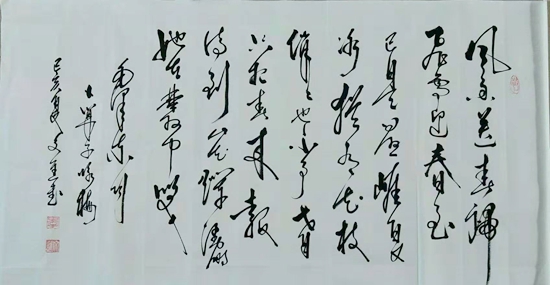 风雨送春归
飞雪迎春到
已是悬崖百丈
冰犹有花枝
俏々也不争春
只把春来报
待到山花烂漫时
她在丛中笑
毛泽东词
卜算子咏梅
己亥夏